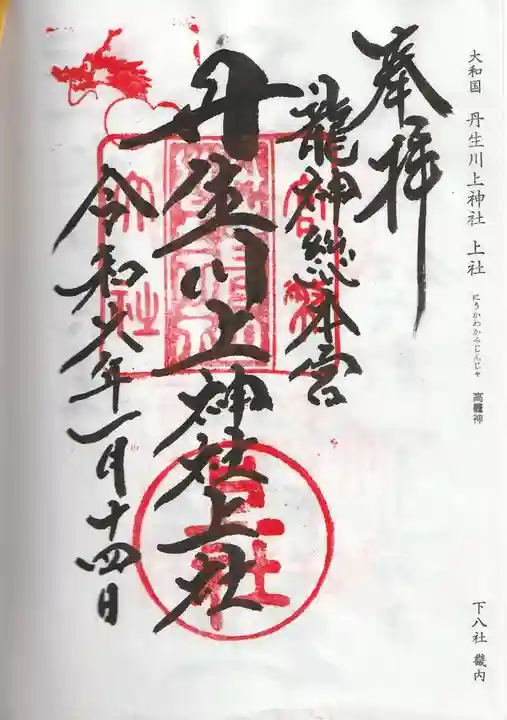 大和国 丹生川上神社 上社
にうかわかみじんじゃ
高龗神
下八社 畿内
奉拝
龍神総本宮
丹生川上神社上社
令和六年一月十四日
上社